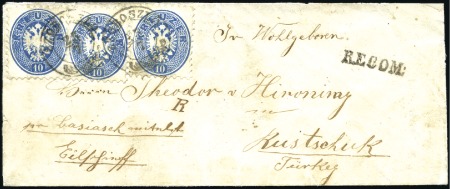 10 10 10
Sr. Wohlgeboren
RECOM:
Herrn Theodor v Hironimy
R
in
pr Basiasch mittelst
Eilschiff
Rustschuk
Türkey